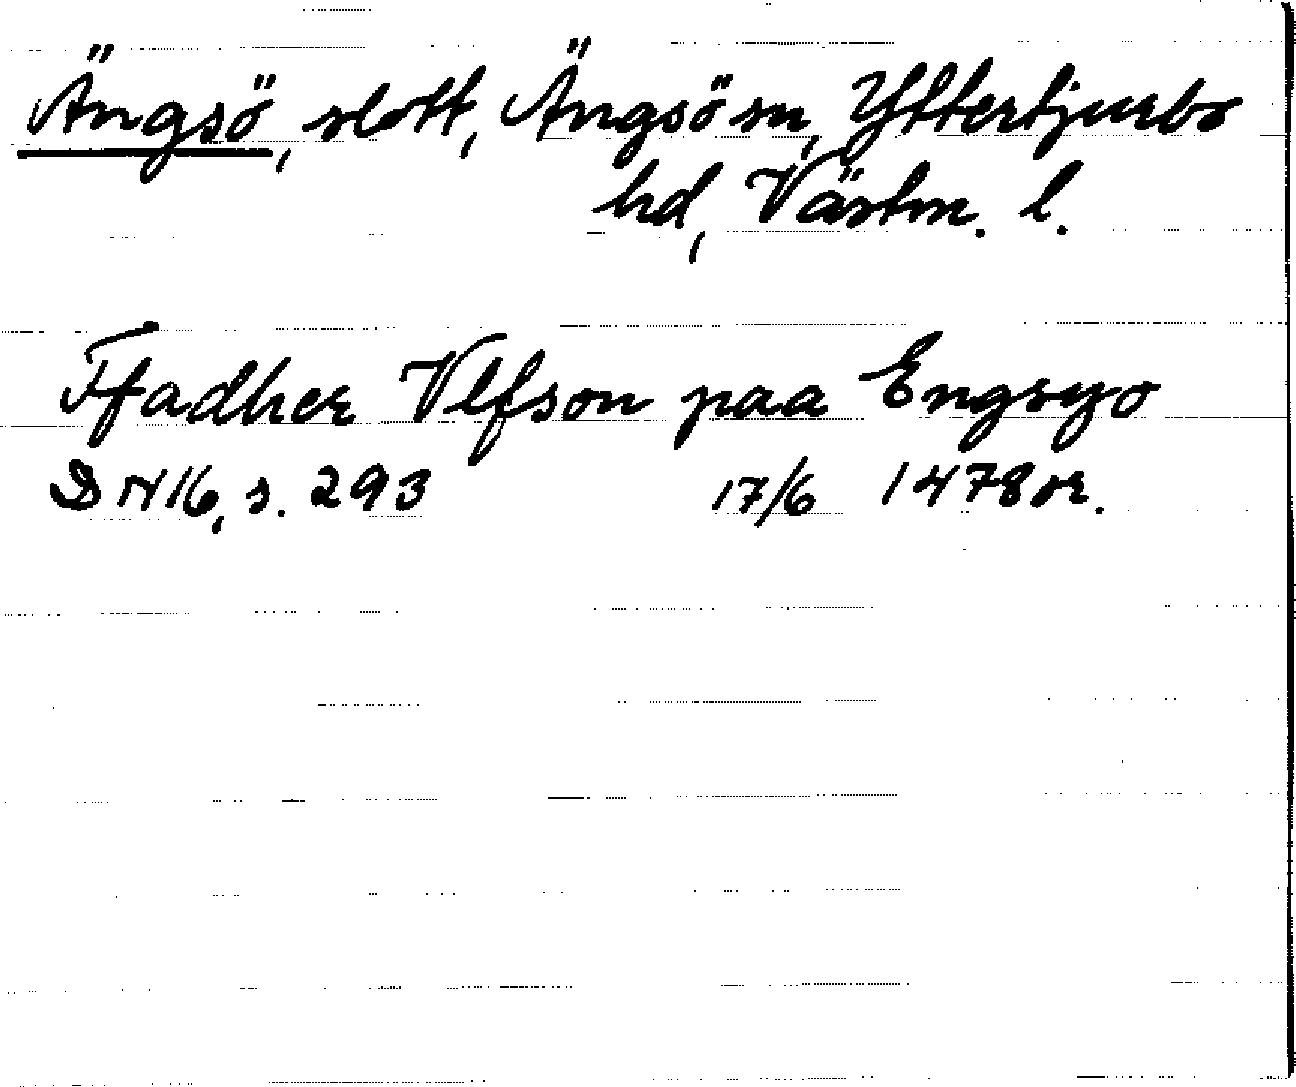 Ängsö, slott, Ängsö sn, Yttertjurbo
hd, Västm. l.
Ffadher Vlfson paa Engsyo
DN 16, s. 293 17/6 1478 or.